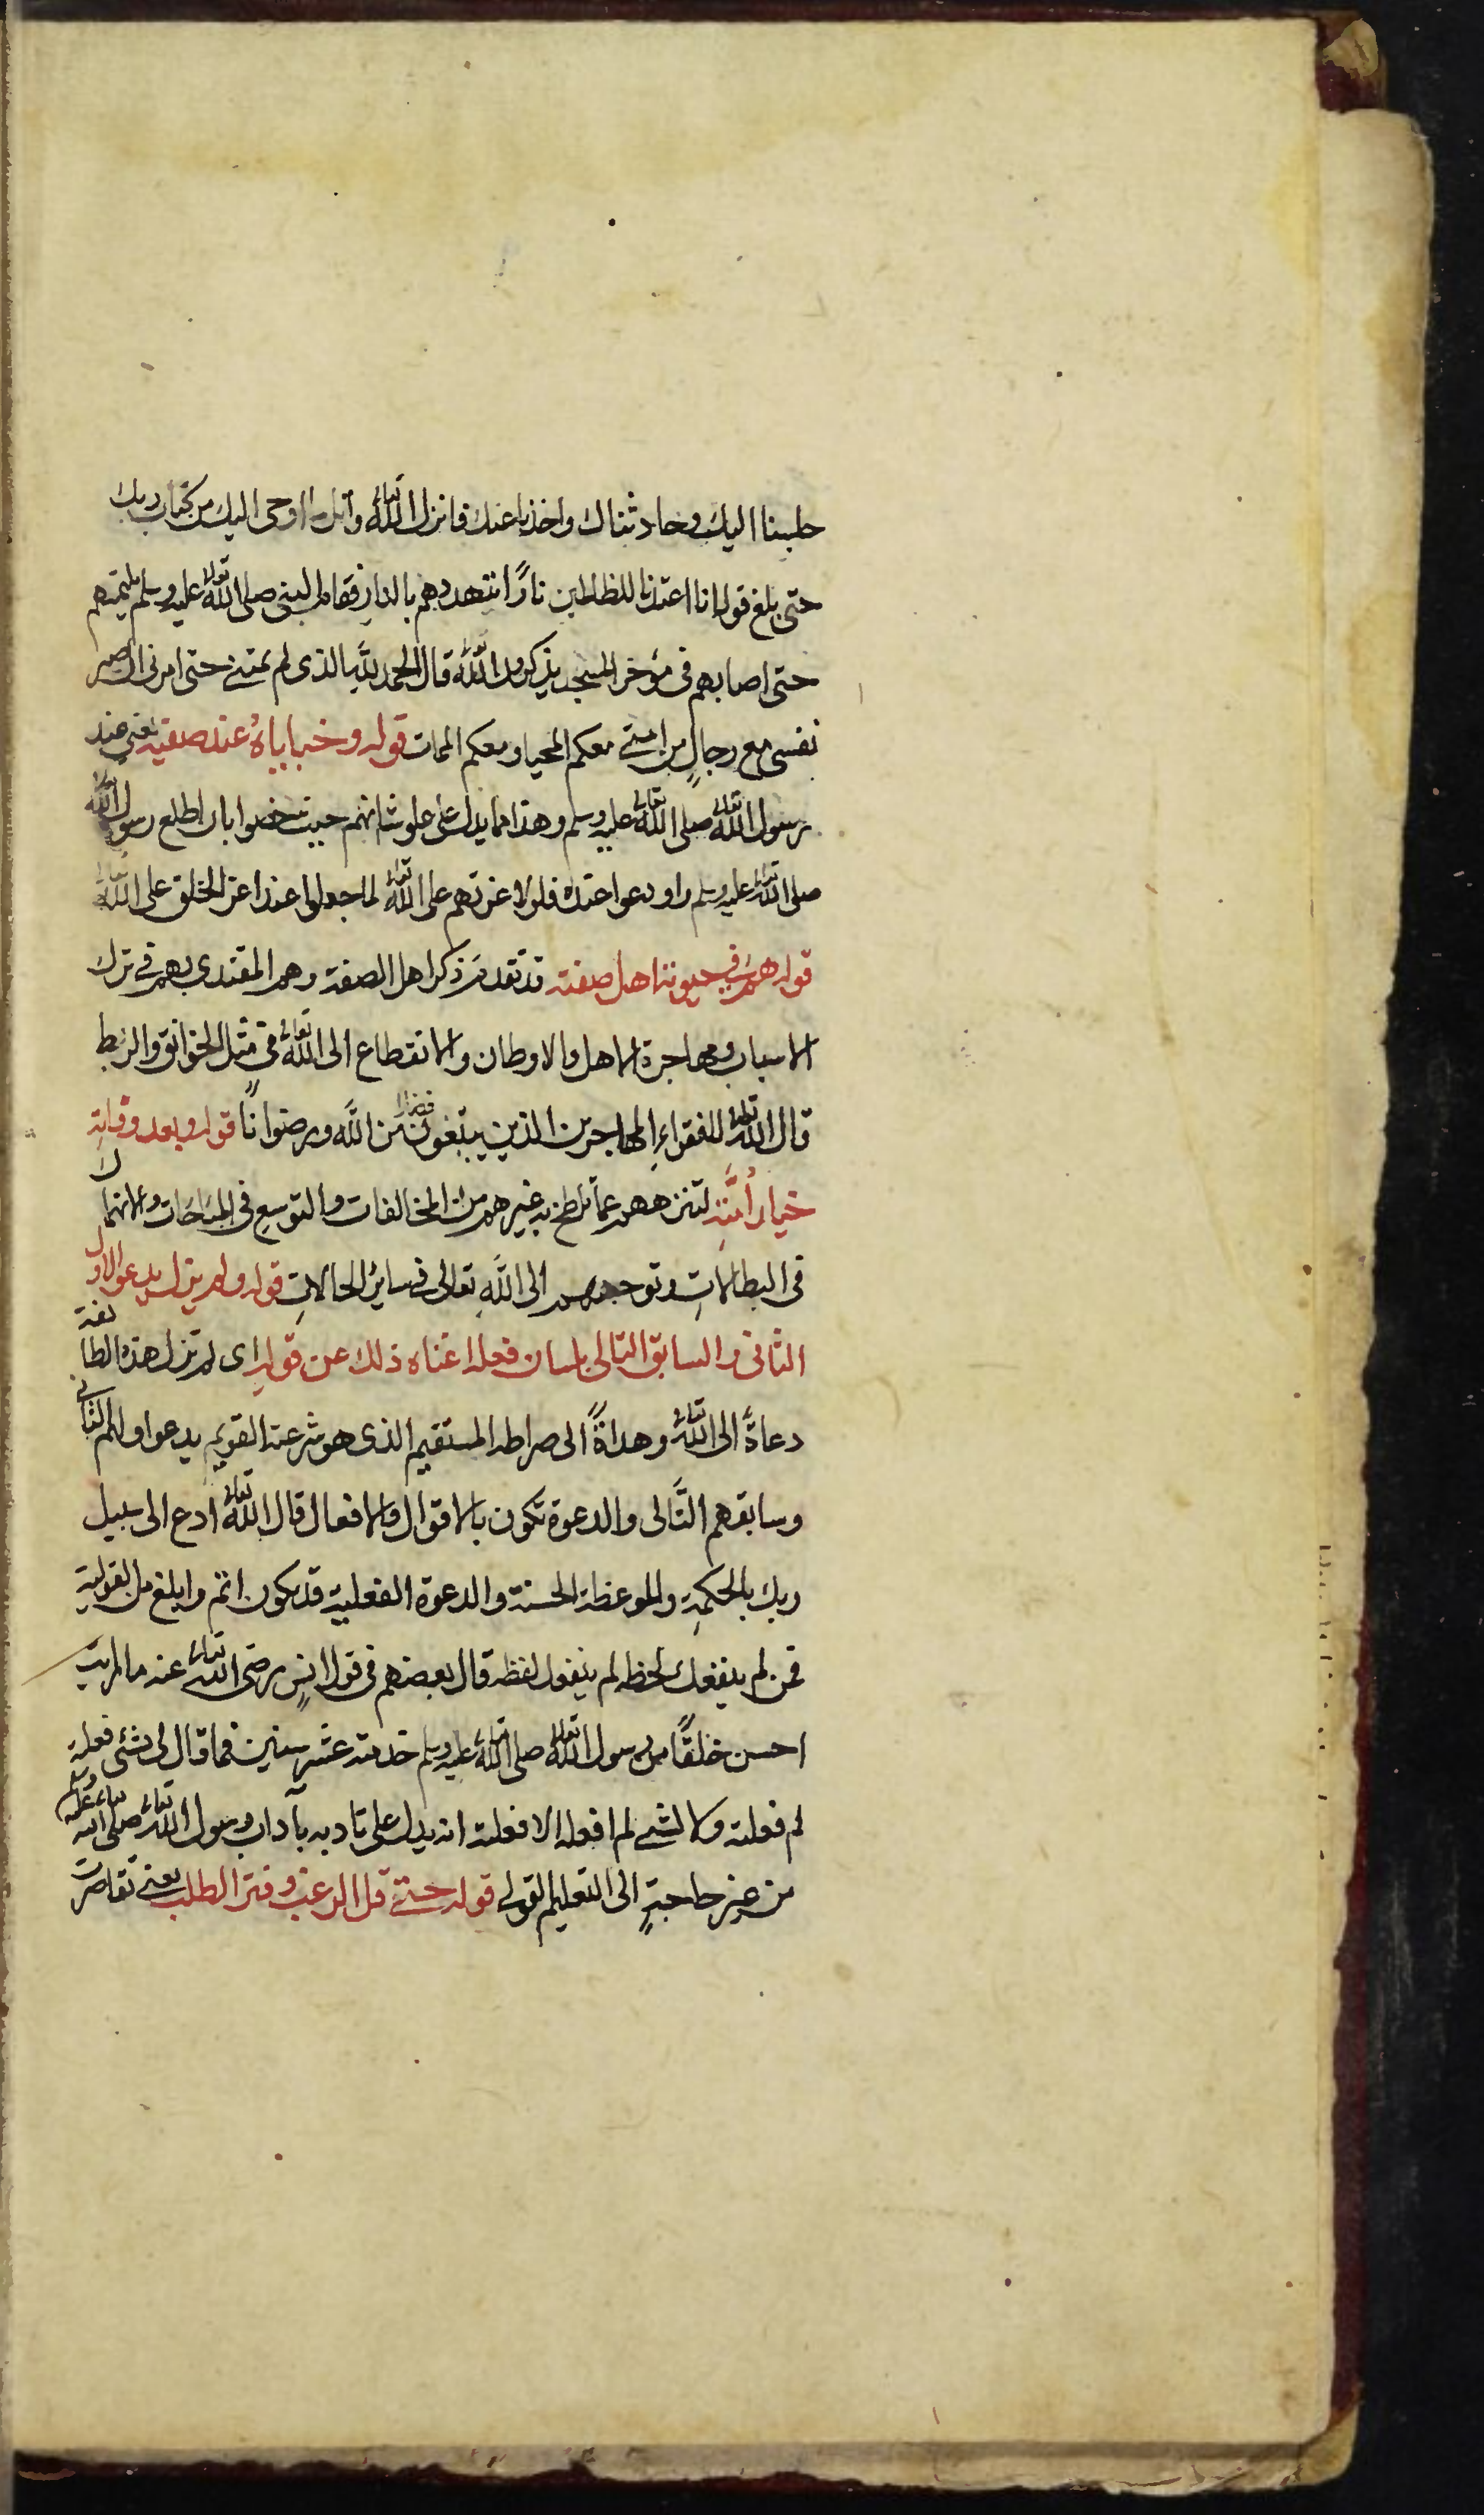 جلسنا اليك وحادثناك واخذنا عنك فانزل الله تعالى واتل ما اوحى اليك من كتاب ربك
حتى بلغ قوله انا اعتدنا للظالمين نارًا يتهددهم بالنار فقام النبى صلى الله تعالى عليه وسلم يلتمسهم
حتى اصابهم فى مؤخر المسجد يذكرون الله تعالى قال الحمد لله الذى لم يمتنى حتى امرنى ان اصبر
نفسى مع رجالٍ من امتى معكم المحيا ومعكم الممات قوله وخبايا‌ه عند صفيه يعنى عند
رسول الله تعالى صلى الله تعالى عليه وسلم وهذا مما يدل على علو شانهم حيث خصوا بان اطلع رسول الله
صلى الله تعالى عليه وسلم واودعوا عنده فلولا عزتهم على الله تعالى لما جعلوا عند اعز الخلق على الله تعالى
قوله هم فى حيوته اهل صفته قد تقدم ذكر اهل الصفة وهم المقتدى بهم فى ترك
الاسباب ومهاجرة الاهل والاوطان والانقطاع الى الله تعالى فى مثل الخوانق والربط
قال الله تعالى للفقراءِ المهاجرين الذين يبتغون فضلا من الله ورضوانًا قوله وبعد وفاتِه
خيار اُمَّتِه لتنزههم عما تلطخ به غيرهم من المخالفات والتوسع فى المباحات والانهماك
فى البطالاتِ وتوجههم الى اللهِ تعالى فى سائر الحالاتِ قوله ولم يزل يدعو الاول
الثانى والسابق التالى بلسان فعله اغناه ذلك عن قوله اى لم تزل هذه الطائفة
دعاةً الى الله تعالى وهداةً الى صراطه المستقيم الذى هو شرعته القويم يدعوا اولهم الثانى
وسابقهم التَّالى والدعوة تكون بالاقوال والافعال قال الله تعالى ادع الى سبيل
ربك بالحكمةِ والموعظة الحسنة والدعوة الفعلية قد يكون اتم وابلغ من القولية
فمن لم ينفعك لحظه لم ينفعك لفظه قال بعضهم فى قول انسٍ رضى الله تعالى عنه ما رايت
احسن خلقًا من رسول الله تعالى صلى الله تعالى عليه وسلم خدمته عشر سنين فما قال لى لشئى فعلته
لم فعلته ولا لشئ لم افعله الا فعلته انه يدل على تادبه بآداب رسول الله تعالى صلى الله تعالى عليه وسلم
من غير حاجةٍ الى التعليم القولى قوله حتى قل الرغب وفتر الطلب يعنى تقاصرت